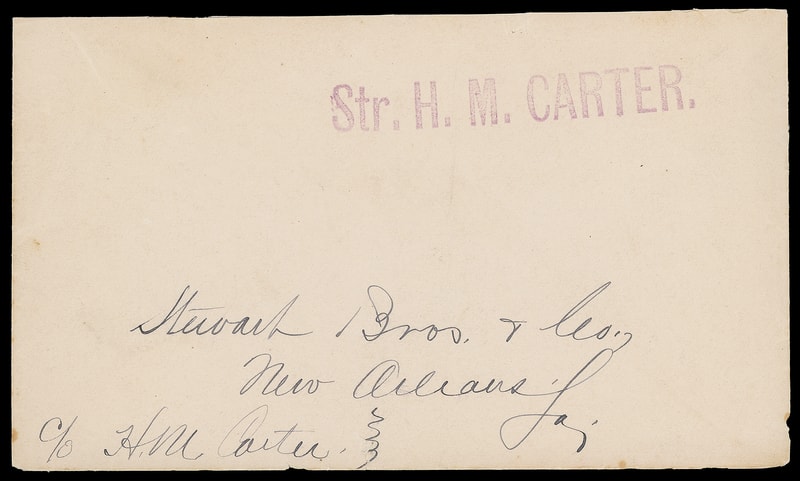 Str. H. M. CARTER.
Stewart Bros. & Co.,
New Orleans La,
c/o H. M. Carter.